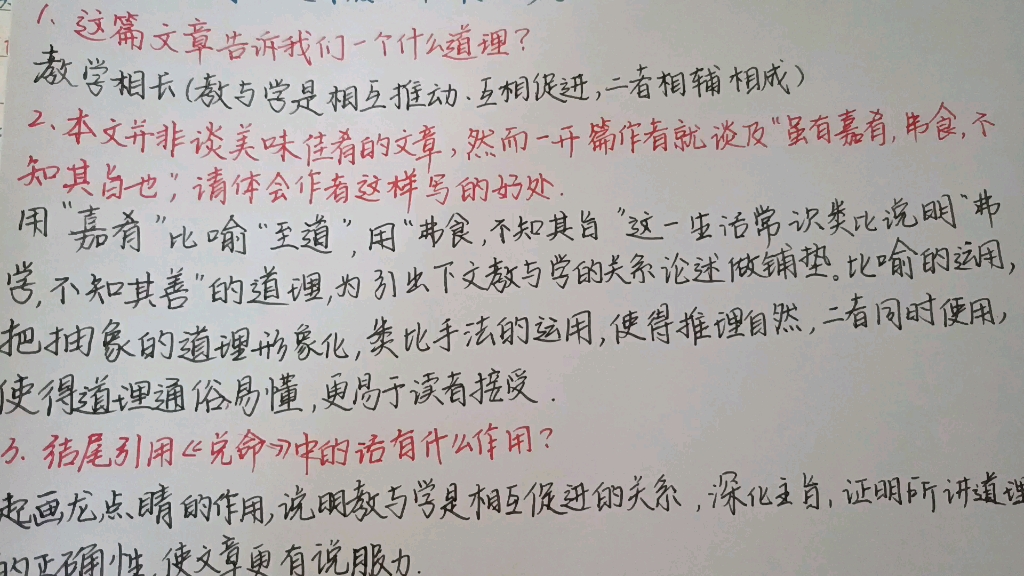 1、这篇文章告诉我们一个什么道理？
教学相长(教与学是相互推动、互相促进,二者相辅相成)
2、本文并非谈美味佳肴的文章,然而一开篇作者就谈及"虽有嘉肴,弗食,不
知其旨也",请体会作者这样写的好处.
用"嘉肴"比喻"至道",用"弗食,不知其旨"这一生活常识类比说明"弗
学,不知其善"的道理,为引出下文教与学的关系论述做铺垫。比喻的运用,
把抽象的道理形象化,类比手法的运用,使得推理自然,二者同时使用,
使得道理通俗易懂,更易于读者接受.
3.结尾引用《兑命》中的话有什么作用?
起画龙点睛的作用,说明教与学是相互促进的关系,深化主旨,证明所讲道理
的正确性,使文章更有说服力.